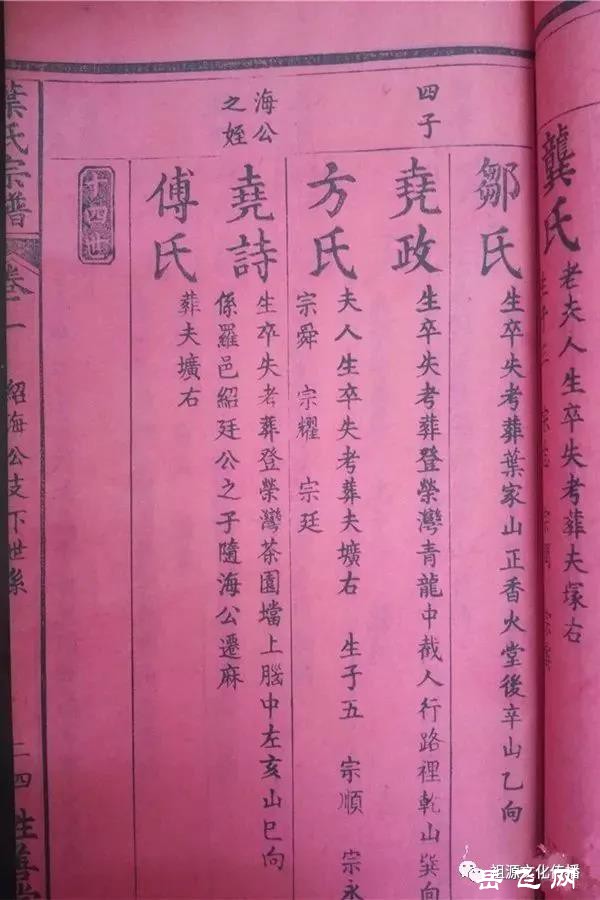 龔氏
老夫人生卒失考葬夫塚右
鄒氏
生卒失考葬葉家山正香火堂後辛山乙向
四子
堯政
生卒失考葬登榮灣青龍中截人行路裡乾山巽向
方氏
夫人生卒失考葬夫壙右 生子五 宗順 宗永
宗舜 宗耀 宗廷
海公
之姪
堯詩
生卒失考葬登榮灣茶園壋上腦中左亥山巳向
係羅邑紹廷公之子隨海公遷麻
傅氏
葬夫壙右
十四世
葉氏宗譜
卷一
紹海公支下世系
二四
性善堂
祖源文化传播
岳飞网